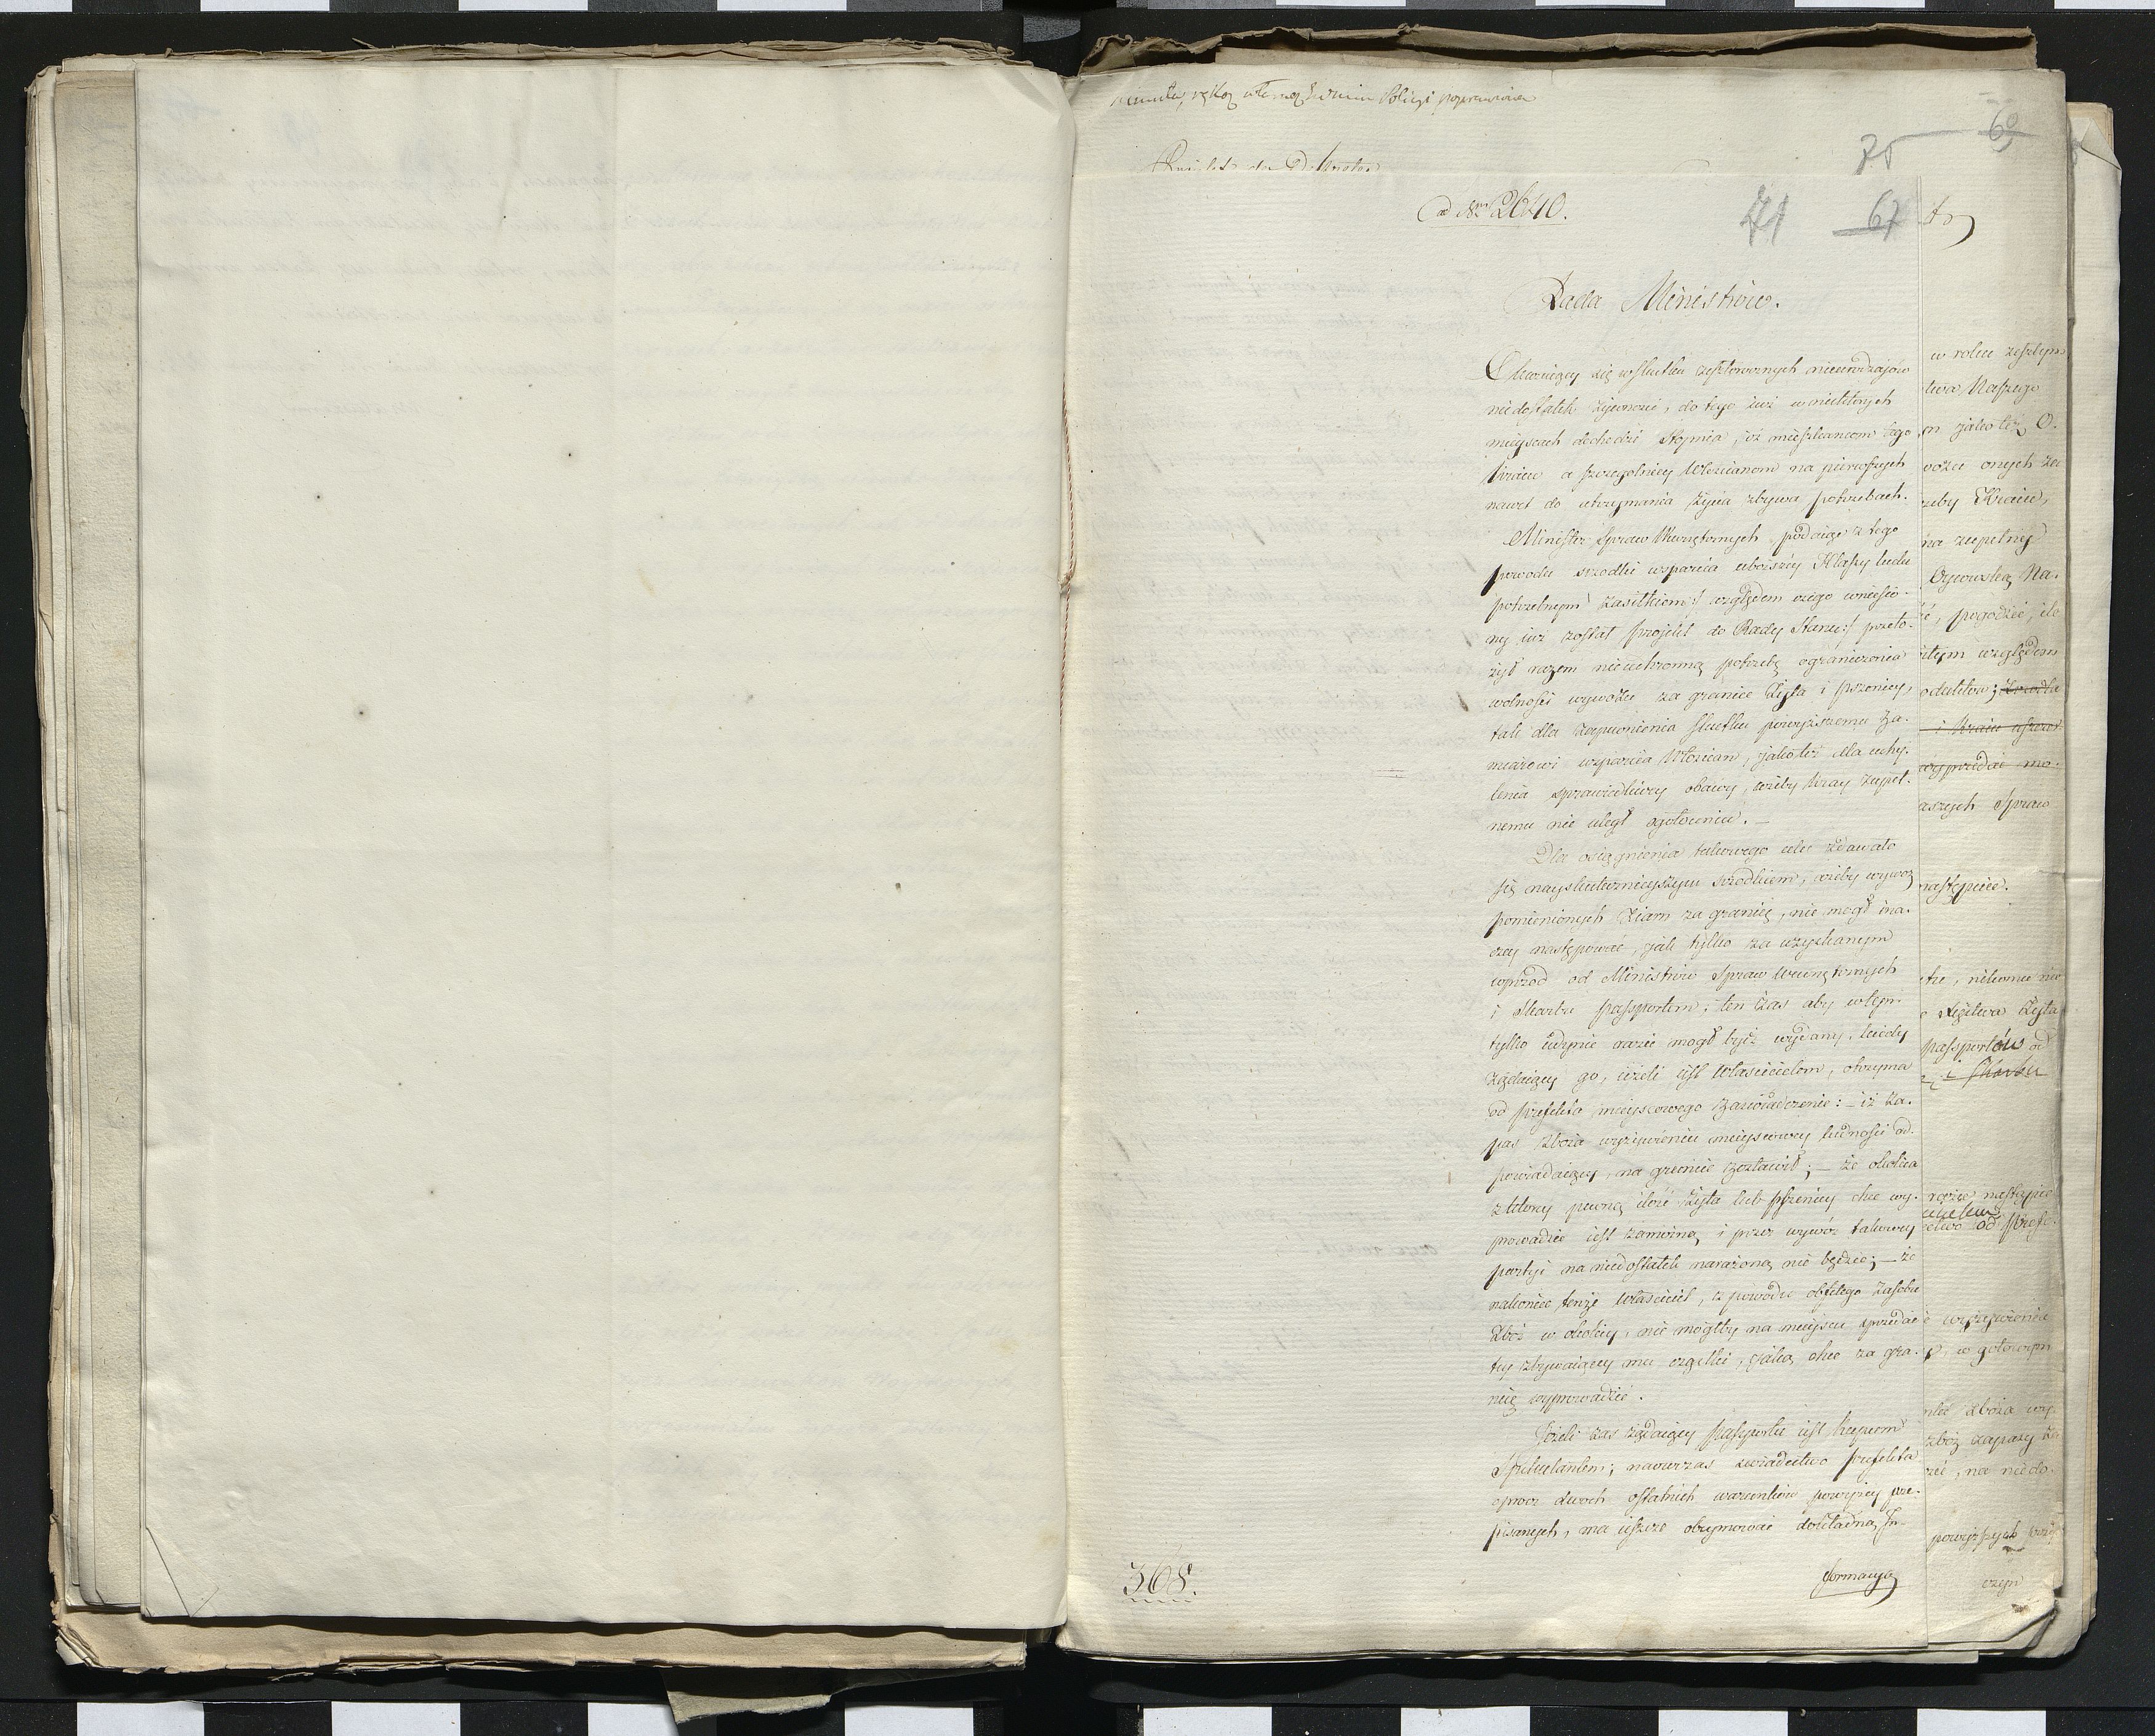 poprawiona
75 69
ad Nrm 2640.
71 67
Rada Ministrów.
Okazuiący się w skutku zeszłorocznych nieurodzajów
niedostatek żywności, do tego iuż w niektórych
mieyscach dochodzi stopnia, iż mieszkancom tego
kraiu a szczególniey Włościanom na pierwszych
nawet do utrzymania życia zbywa potrzebach.
Minister Spraw Wewnętrznych podaiąc z tego
powodu srzodki wsparcia uboższey Klassy ludu
potrzebnym zasiłkiem :/ względem czego wniesio-
ny iuż został projekt do Rady Stanu :/ przeło-
żył razem nieuchronną potrzebę ograniczenia
wolności wywozu za granice żyta i pszenicy,
tak dla zapewnienia skutku powyższemu za-
miarowi wsparcia Włościan, jako też dla uchy-
lenia sprawiedliwey obawy, ażeby kray zupeł-
nemu nie uległ ogołoceniu. —
Dla osiągnienia takowego celu zdawało
się nayskutecznieyszym srzodkiem, ażeby wywoz
pomienionych ziarn za granicę, nie mogł ina-
czey następować, jak tylko za uzyskanym
wprzod od Ministrów Spraw Wewnętrznych
i Skarbu passportem; ten zas aby w tym
tylko iedynie razie mogł bydź wydany, kiedy
żądaiący go, ieżeli iest Właścicielem, otrzyma
od prefekta mieyscowego zaswiadczenie: — iż za-
pas zboża wyżywieniu mieyscowey ludności od-
powiadaiący, na gruncie zostawił; — że okolica
z którey pewną ilość żyta lub pszenicy chce wy-
prowadzić iest zamożną, i przez wywóz takowey
partyi na niedostatek narażoną nie będzie; — że
nakoniec tenże Właściciel, z powodu obfitego zasobu
zbóż w okolicy, nie mógłby na mieyscu sprzedać
tey zbywaiącey mu cząstki, jaką chce za gra-
nicę wyprowadzić.
Jeżeli zas żądaiący passportu iest kupcem
Spekulantem; naowczas swiadectwo prefekta
oprocz dwoch ostatnich warunków powyżey prze-
pisanych, ma ieszcze obeymować dokładną In-
formacyą
368.
w roku zeszłym
twa Naszego
jako też O-
wozu onych za
zeby Kraiu,
na zupełney
Oycowską Na-
pogodzić, ile
tym względem
oduktow;
i Kraiu
wyprzedać mo-
aszych Spraw
następuie.
nikomu nie
Xięstwa żyta
passportów od
i Skarbu
razie nastąpić
ctwo od Prefe-
wyżywieniu
w gotowym
zboża wy-
zbóż zapasy za
na niedo-
powyższych
czyn